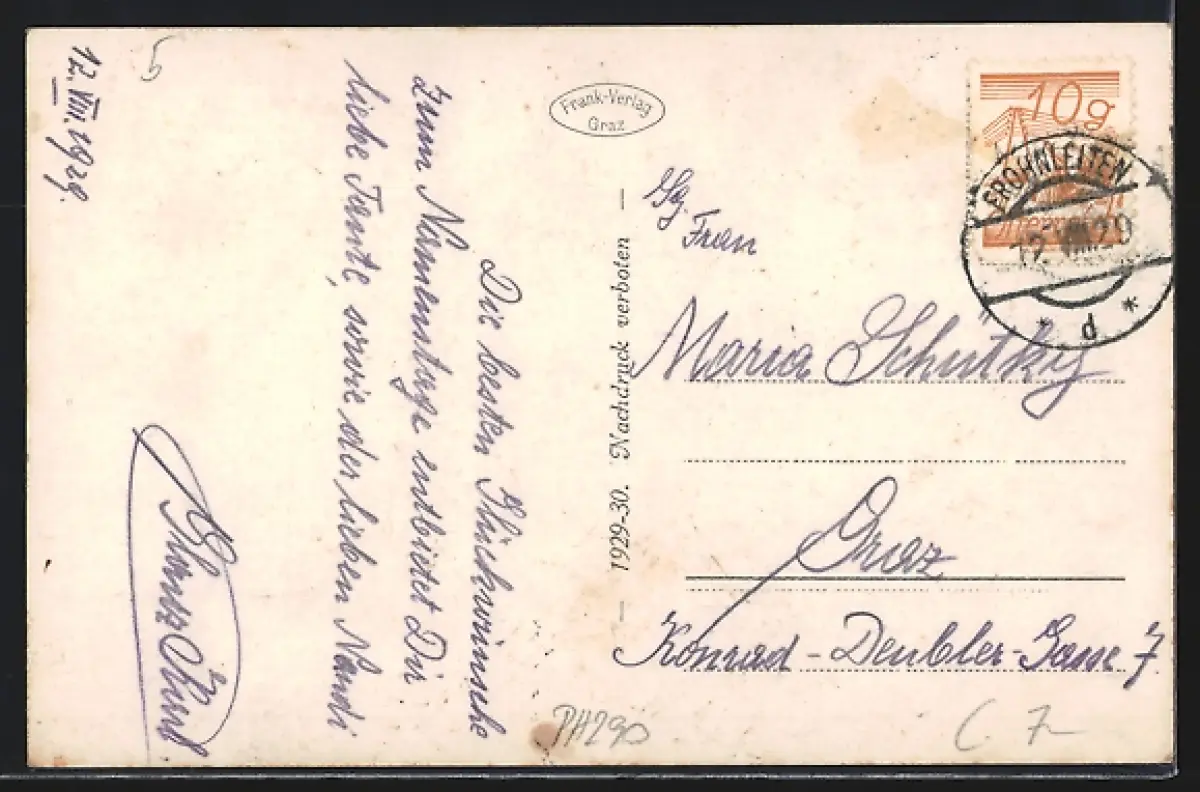 12. VIII. 1929.
5
Die besten Glückwünsche
zum Namenstage entbietet Dir
liebe Tante, sowie der lieben Nandi
Frank-Verlag
Graz
— 1929-30. Nachdruck verboten —
10g
FROHNLEITEN
12. VIII. 29
* d *
Frau
Maria Schutzky
Graz
Konrad-Deubler-Gasse 7
PH290
C 7-